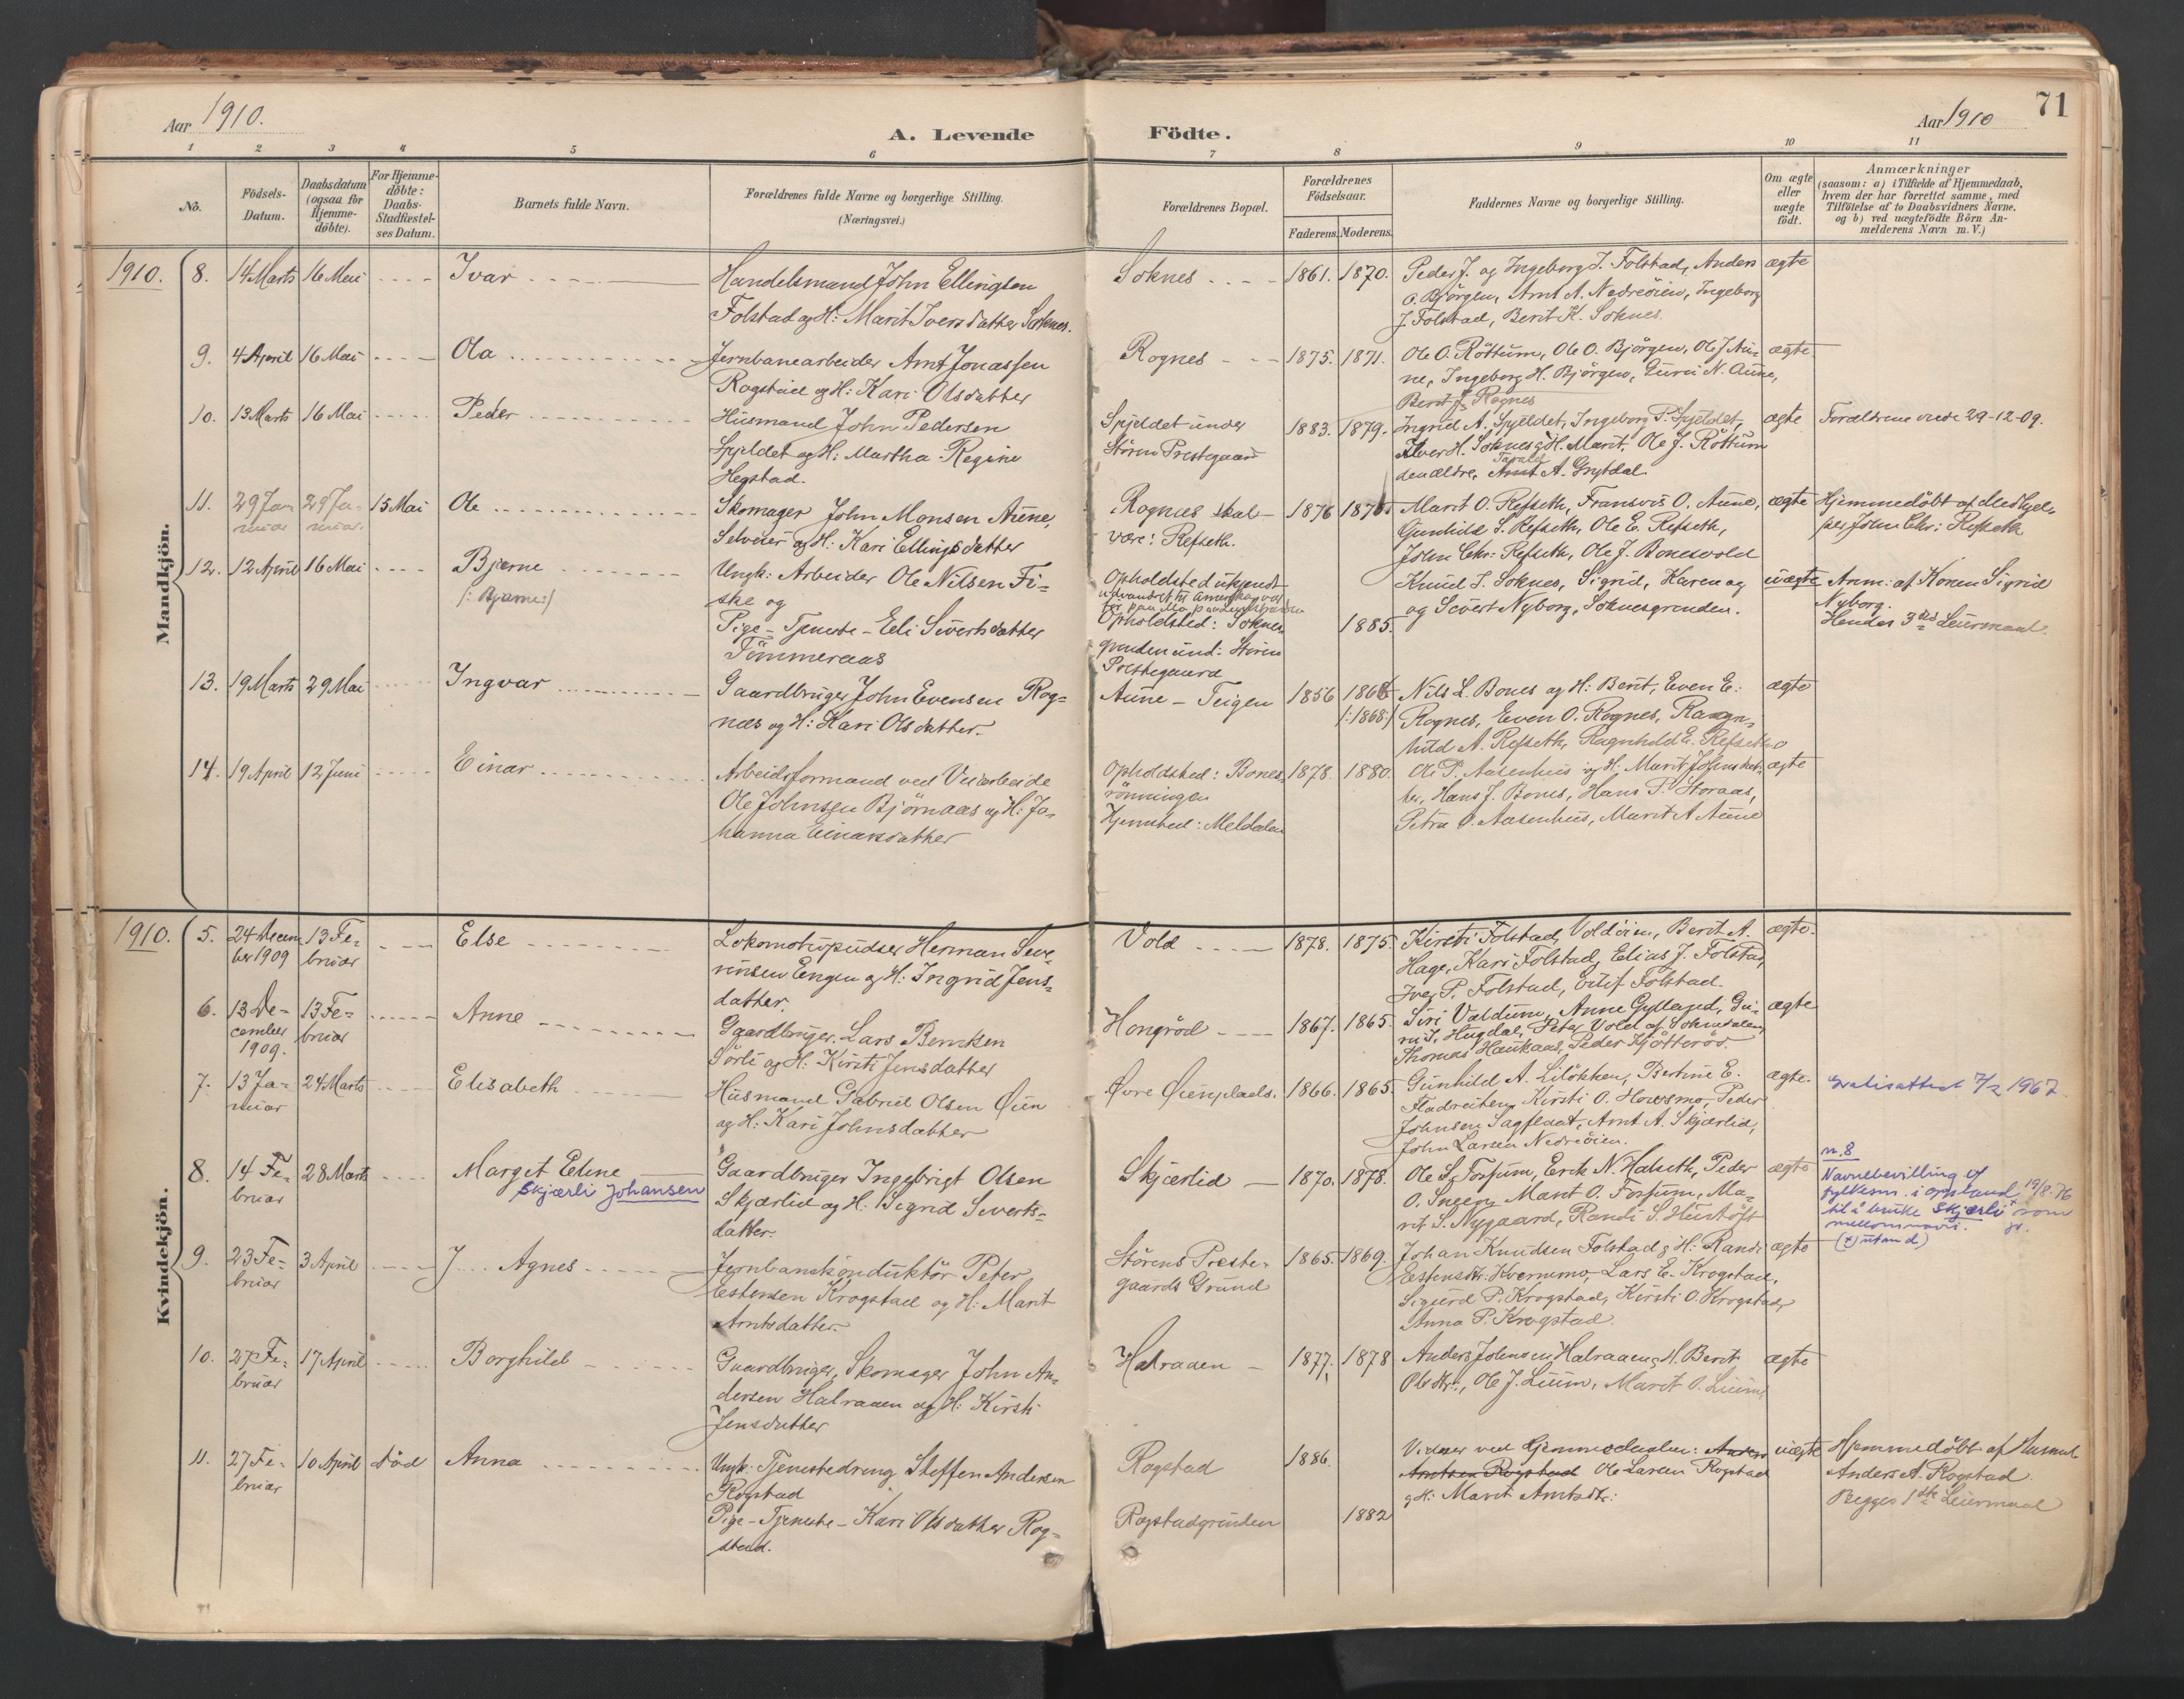 Aar 1910.
A. Levende Födte.
Aar 1910
71
1 2 3 4 5 6 7 8 9 10 11
No.
Födsels-Datum.
Daabsdatum (ogsaa for Hjemme-döbte).
For Hjemme-döbte: Daabs-Stadfæstel-ses Datum.
Barnets fulde Navn.
Forældrenes fulde Navne og borgerlige Stilling.
(Næringsvei.)
Forældrenes Bopæl.
Forældrenes Födselsaar.
Faderens. Moderens.
Faddernes Navne og borgerlige Stilling.
Om ægte eller uægte födt.
Anmærkninger
(saasom: a) i Tilfælde af Hjemmedaab,
hvem der har forrettet samme, med
Tilföielse af to Daabsvidners Navne,
og b) ved uægtefödte Börn An-
melderens Navn m. V.)
Mandkjön.
1910. 8. 14 Marts 16 Mai Ivar
Handelsmand John Ellingsen
Folstad og H: Marit Iversdatter Soknes.
Soknes 1861. 1870.
Peder J. og Ingeborg J. Folstad, Anders
O. Björgen, Arnt A. Nedreöien, Ingeborg
J. Folstad, Berit K. Soknes.
ægte
9. 4 April 16 Mai Ola
Jernbanearbeider Arnt Jonassen
Rogstad og H: Kari Olsdatter
Rognes 1875. 1871.
Ole O. Röttum, Ole O. Björgen, Ole J. Au-
ne, Ingeborg H. Björgen, Guru N. Aune,
Berit J. Rognes
ægte
10. 13 Marts 16 Mai Peder
Husmand John Pedersen
Spjeldet og H: Martha Regine
Hegstad.
Spjeldet under
Stören Prestegaard
1883. 1879.
Ingrid A. Spjeldet, Ingeborg P. Spjeldet,
Halver H. Soknes og H. Marit, Ole J. Röttum
den ældre, Arnt A. Grytdal
ægte
Forældrene viede 29-12-09.
11. 29 Ja-
nuar
29 Ja-
nuar
15 Mai Ole
Skomager John Monsen Aune,
Selveier og H: Kari Ellingsdatter
Rognes skal
være: Refseth.
1876
Marit O. Refseth, Fransvis O. Aune,
Gunhild S. Refseth, Ole E. Refseth,
John Chr: Refseth, Ole J. Bonesvold
ægte
Hjemmedöbt af Medhjel-
per John Chr: Refseth
12. 12 April 16 Mai Bjerne
(: Bjarne:)
Ungk: Arbeider Ole Nilsen Fi-
ske og
Pige - Tjeneste - Eli Sivertsdatter
Tömmeraas
Opholdsted ukjendt
udvandret til Amerika
Opholdsted: Soknes
grunden und: Stören
Prestegaard
1885.
Knud S. Soknes, Sigrid, Karen og
og Sivert Nyborg, Soknesgrunden.
uægte
Anm: af Konen Sigrid
Nyborg.
Hendes 3die Leiermaal.
13. 19 Marts 29 Mai Ingvar
Gaardbruger John Evensen Rog-
nes og H: Kari Olsdatter.
Aune - Teigen 1856
(:1868:)
Nils L. Bones og H: Berit, Even E:
Rognes, Even O. Rognes, Ragn-
hild A. Refseth, Ragnhild E. Refseth
ægte
14. 19 April 12 Juni Einar
Arbeidsformand ved Veiarbeide
Ole Johnsen Björnaas og H: Jo-
hanna Einarsdatter
Opholdsted: Bones-
rönningen
Hjemsted: Meldalen
1878. 1880.
Ole P. Aasenhus og H: Marit Johnsdat-
ter, Hans J. Bones, Hans P. Storaas,
Petra O. Aasenhus, Marit A Aune
ægte
Kvindekjön.
1910. 5. 24 Decem
ber 1909
13 Fe-
bruar
Else
Lokomotivpudser Herman Seve-
rinsen Engen og H: Ingrid Jens-
datter.
Vold 1878. 1875.
Kirsti Folstad, Voldöien, Berit A.
Hage, Kari Folstad, Elias J. Folstad,
Iver P. Folstad, Eilif Folstad.
ægte.
6. 13 De-
cember
1909.
13 Fe-
bruar
Anne
Gaardbruger Lars Berntsen
Sörli og H: Kirsti Jensdatter
Hongröd 1867. 1865.
Siri Valdum, Anne Gylland, Gu-
ru S. Hugdal, Peter Vold af Soknedalen,
Thomas Haukaas, Peder Kjötteröd.
ægte
7. 13 Ja-
nuar
24 Marts Elisabeth
Husmand Gabriel Olsen Öien
og H: Kari Johnsdatter
Övre Öienplads. 1866. 1865.
Gunhild A. Lilökken, Berthine E.
Fladreiten, Kirsti O. Howsmo, Peder
Johnsen Sagflaat, Arnt A. Skjærlid,
John Larsen Nedreöien.
ægte.
Gratisattest 7/2 1967
8. 14 Fe-
bruar
28 Marts Marget Eline
Skjærli Johansen
Gaardbruger Ingebrigt Olsen
Skjærlid og H: Sigrid Siverts-
datter.
Skjærlid 1870. 1878.
Ole S. Forsum, Erik N. Halseth, Peder
O. Ingen, Marit O. Forsum, Ma-
rit S. Nygaard, Randi S.
ægte
nr. 8
Navnebevilling af
fylkesm. i Oppland 19/8-76
til å bruke Skjærli x som
mellomnavn.
(x) utan d)
9. 23 Fe-
bruar
3 April J. Agnes
Jernbanekonduktör Peter
Estensen Krogstad og H: Marit
Arntsdatter.
Störens Preste-
gaards Grund
1865. 1869.
Johan Knudsen Folstad og H: Randi
Estensdtr: Kvernmo, Lars E. Krogstad,
Sigurd P. Krogstad, Kirsti O. Krogstad,
Anna P. Krogstad.
ægte
10. 27 Fe-
bruar
17 April Borghild
Gaardbruger, Skomager John An-
dersen Halraaen og H: Kirsti
Jensdatter
Halraaen 1877. 1878
Anders Johnsen Halraaen og H. Berit
Olsdtr:, Ole J. Lium, Marit O. Lium
ægte
11. 27 Fe-
bruar
10 April död Anna
Ungk: Tjenestedreng Steffen Andersen
Rogstad
Pige - Tjeneste - Kari Olsdatter Rog-
stad.
Rogstad 1886.
Rogstadgrunden 1882
Vidner ved Hjemmedaaben: Anders
Arntsen Rogstad Ole Larsen Rogstad
og H: Marit Arntsdtr:
uægte
Hjemmedöbt af Husmd.
Anders A. Rogstad.
Begges 1ste Leiermaal